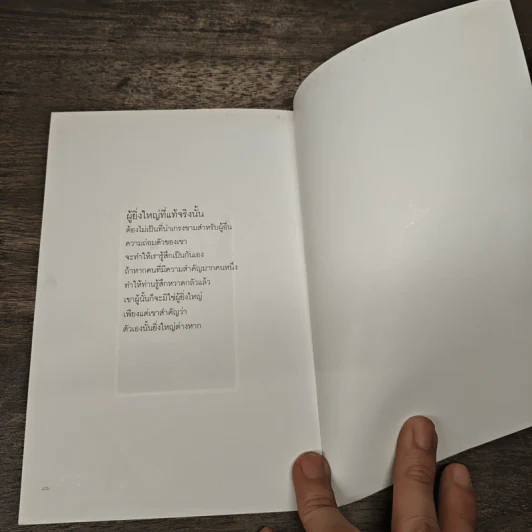 ผู้ยิ่งใหญ่ที่แท้จริงนั้น
ต้องไม่เป็นที่น่าเกรงขามสำหรับผู้อื่น
ความถ่อมตัวของเขา
จะทำให้เรารู้สึกเป็นกันเอง
ถ้าหากคนที่มีความสำคัญมากคนหนึ่ง
ทำให้ท่านรู้สึกหวาดกลัวแล้ว
เขาผู้นั้นก็จะมิใช่ผู้ยิ่งใหญ่
เพียงแต่เขาสำคัญว่า
ตัวเองนั้นยิ่งใหญ่ต่างหาก